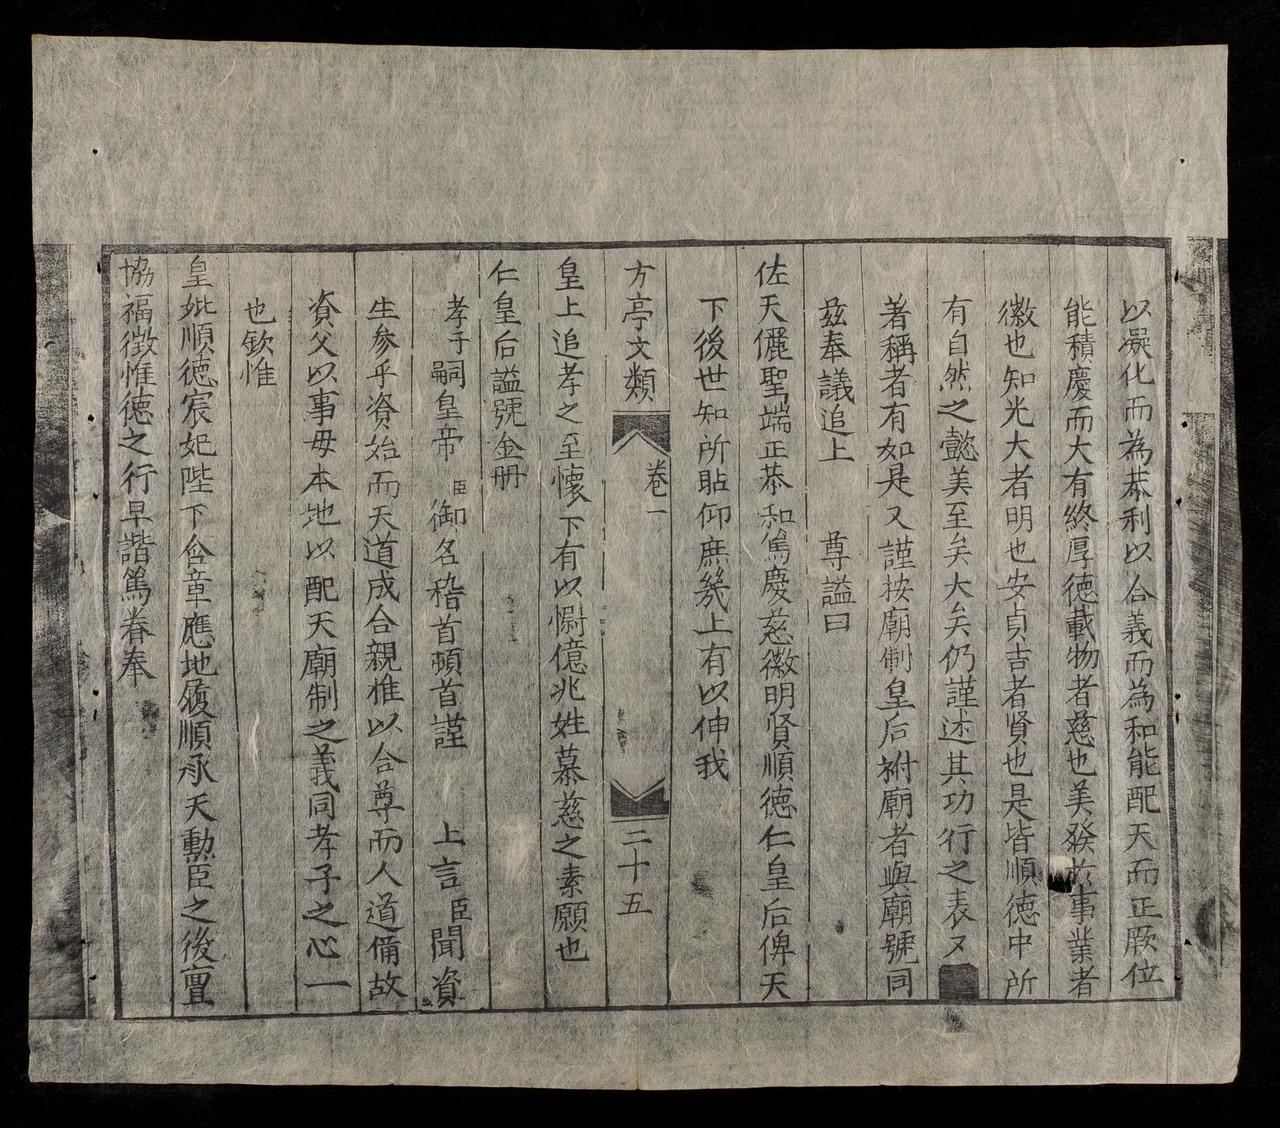 以凝化而為恭利以合義而為和能配天而正厥位
能積慶而大有終厚德載物者慈也美發於事業者
徽也知光大者明也安貞吉者賢也是皆順德中所
有自然之懿美至矣大矣仍謹述其功行之表又
著稱者有如是又謹按廟制皇后祔廟者與廟號同
茲奉議追上 尊謚曰
佐天儷聖端正恭和篤慶慈徽明賢順德仁皇后俾天
下後世知所貼仰庶幾上有以伸我
方亭文類 卷一 二十五
皇上追孝之至懷下有以慰億兆姓慕慈之素願也
仁皇后謚號金冊
孝子嗣皇帝臣御名稽首頓首謹 上言臣聞資
生參乎資始而天道成合親惟以合尊而人道備故
資父以事母本地以配天廟制之義同孝子之心一
也欽惟
皇妣順德宸妃陛下含章應地履順承天勳臣之後亶
協福徵惟德之行早諧篤眷奉